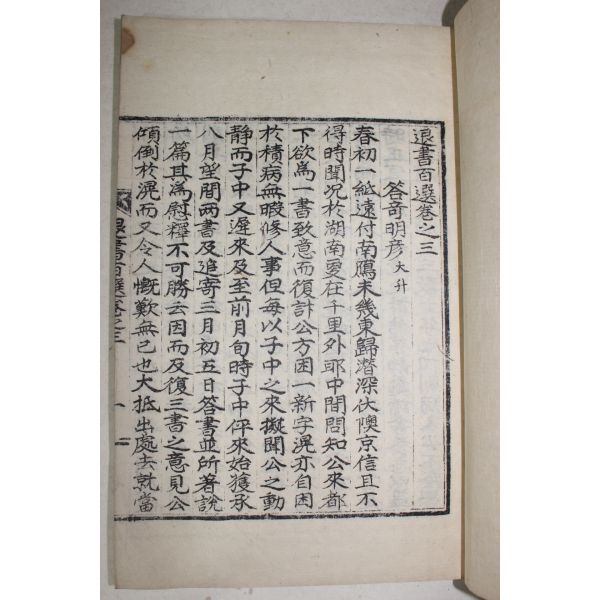 退書百選卷之三
答奇明彦 大升
春初一紙遠付南鴈未幾東歸潜深伏隩京信且不
得時聞况於湖南夐在千里外耶中間問知公來都
下欲爲一書致意而復計公方困一新字滉亦自困
於積病無暇修人事但每以子中之來擬聞公之動
静而子中又遲來及至前月旬時子中伻來始獲承
八月望間兩書及追寄三月初五日答書並所著說
一篇其爲慰釋不可勝云因而反復三書之意見公
傾倒於滉而又令人慨歎無已也大抵出處去就當
退書百選卷之三
一